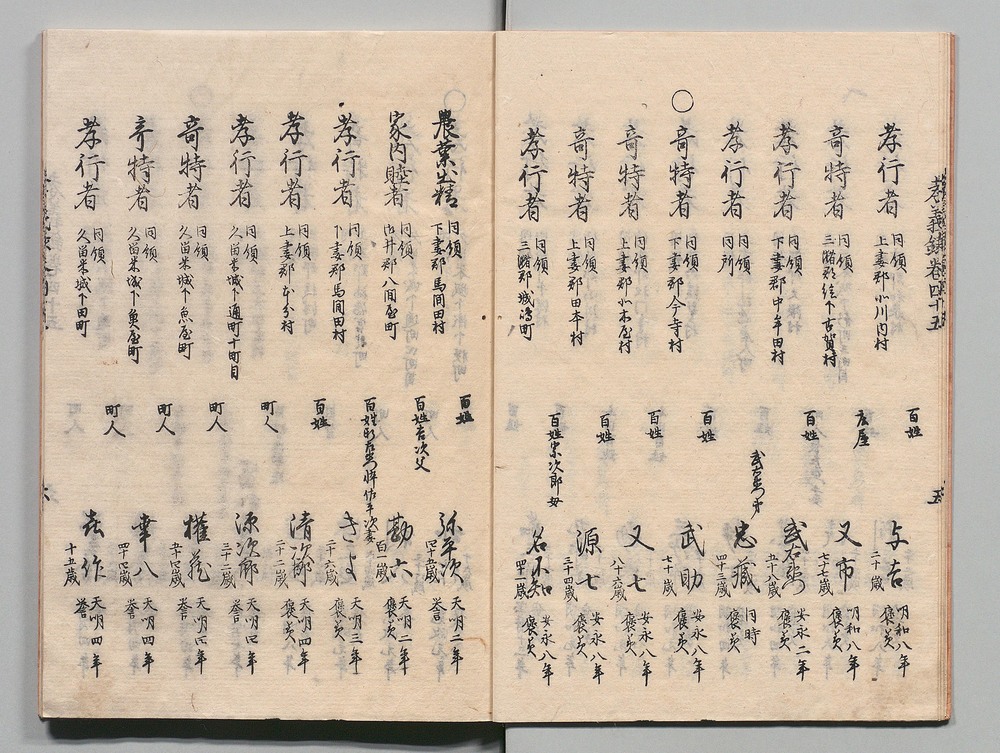 孝義録巻四十五
孝行者 同領 上妻郡北川内村 百姓 与吉 二十歳 明和八年 褒美
奇特者 同領 三潴郡絵下古賀村 庄屋 又市 七十七歳 明和八年 褒美
孝行者 同領 下妻郡中牟田村 百姓 武右衛門 五十八歳 安永二年 褒美
孝行者 同領 同所 武右衛門弟 忠蔵 四十三歳 同時 褒美
○ 奇特者 同領 下妻郡今寺村 百姓 武助 七十歳 安永八年 褒美
奇特者 同領 上妻郡北木屋村 百姓 又七 八十六歳 安永八年 褒美
奇特者 同領 上妻郡田本村 百姓 源七 三十四歳 安永八年 褒美
孝行者 同領 三潴郡城嶋町 百姓宗次郎母 名不知 四十一歳 安永八年 褒美
五
○ 農業出精 同領 下妻郡馬間田村 百姓 弥平次 四十五歳 天明二年 誉
家内睦者 同領 御井郡八間屋町 百姓吉次父 勘六 百一歳 天明二年 褒美
孝行者 同領 下妻郡馬間田村 百姓 悴佐平次妻 きよ 二十六歳 天明三年 褒美
孝行者 同領 上妻郡本分村 百姓 清次郎 二十二歳 天明四年 褒美
孝行者 同領 久留米城下通町十町目 町人 源次郎 三十二歳 天明四年 誉
奇特者 同領 久留米城下魚屋町 町人 権蔵 五十四歳 天明四年 誉
奇特者 同領 久留米城下魚屋町 町人 幸八 四十四歳 天明四年 誉
孝行者 同領 久留米城下田町 町人 喜作 十五歳 天明四年 誉
六